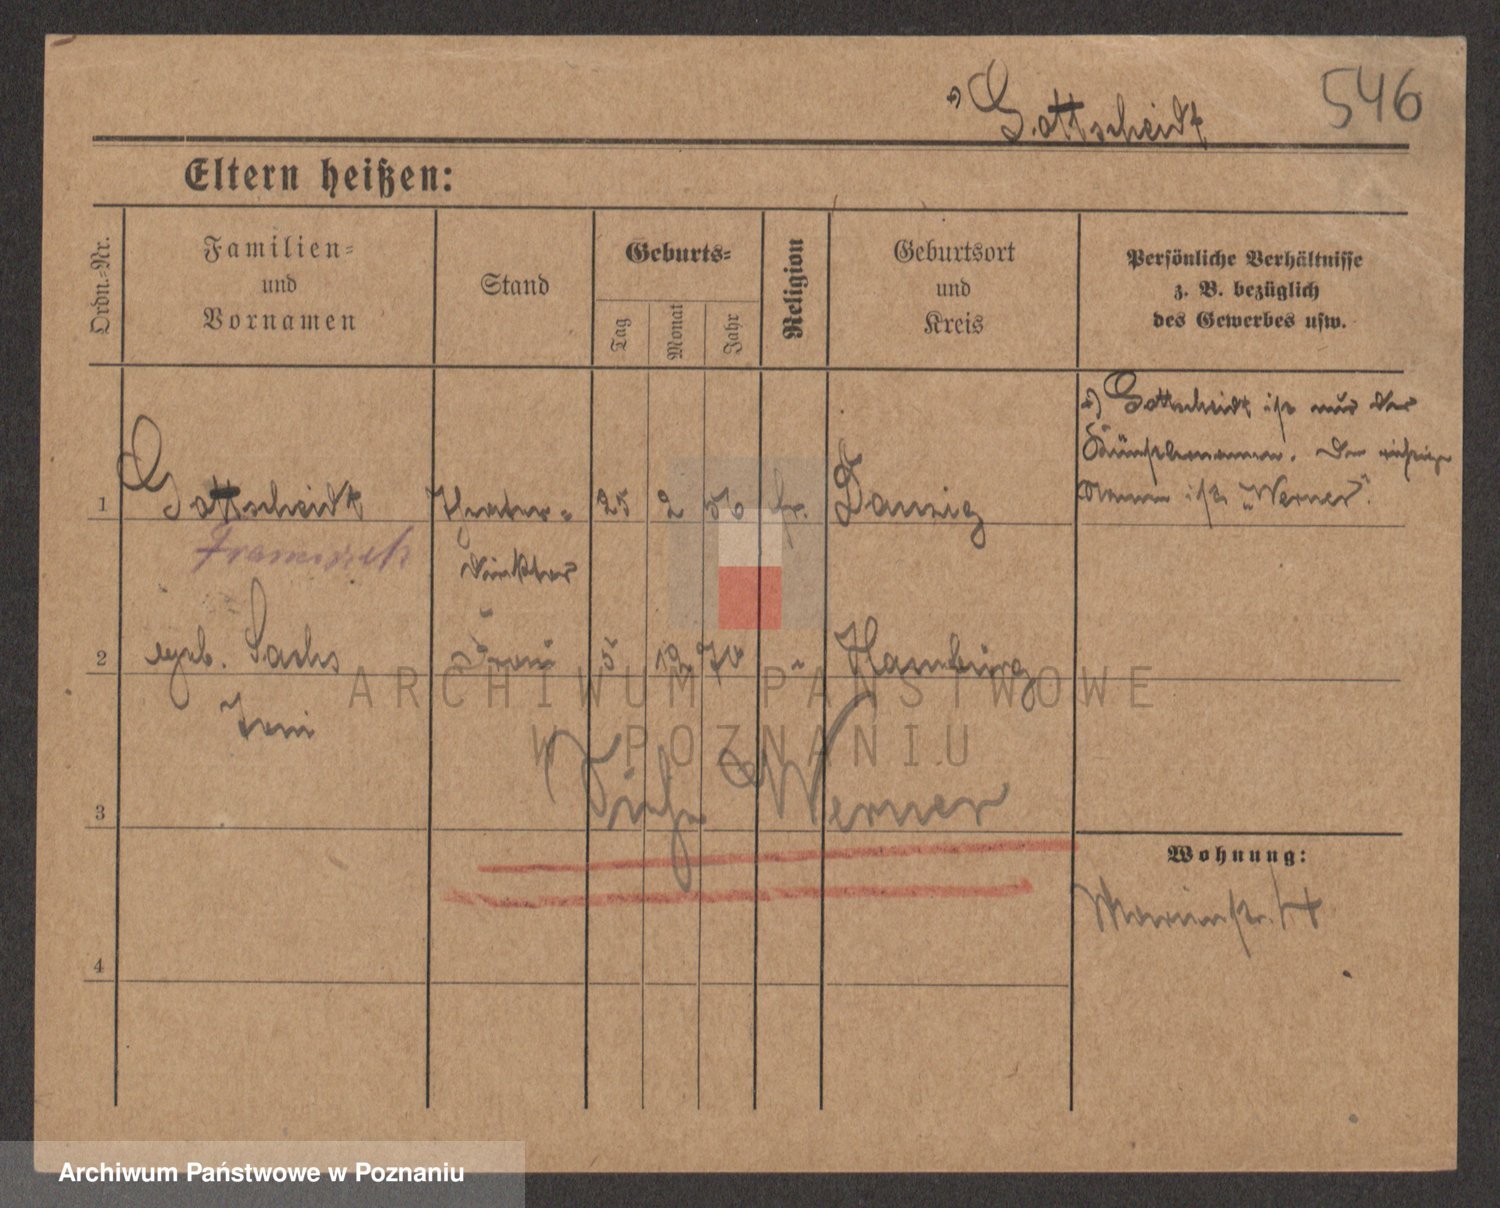 *) Gottscheidt
546
Eltern heißen:
Ordn.=Nr.
Familien=
und
Vornamen
Stand
Geburts=
Tag
Monat
Jahr
Religion
Geburtsort
und
Kreis
Persönliche Verhältnisse
z. B. bezüglich
des Gewerbes usw.
1
Gottscheidt
Theater=
25
2
56
Danzig
*) Gottscheidt ist nur der
Künstlername. Der richtige
Name ist „Werner".
direktor
2
geb. Sachs
Toni
Frau
5
12
70
"
Hamburg
3
Siehe Werner
Wohnung:
4
ARCHIWUM PAŃSTWOWE
W POZNANIU
Archiwum Państwowe w Poznaniu